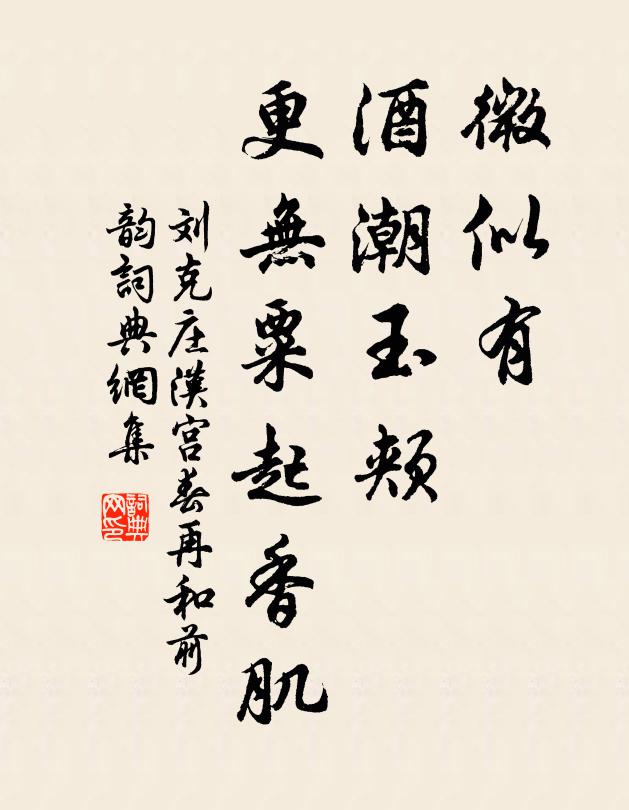 微似有
酒潮玉頰
更無粟起香肌
刘克庄漢宫春再和前
韵詞典網集
詞典
网印